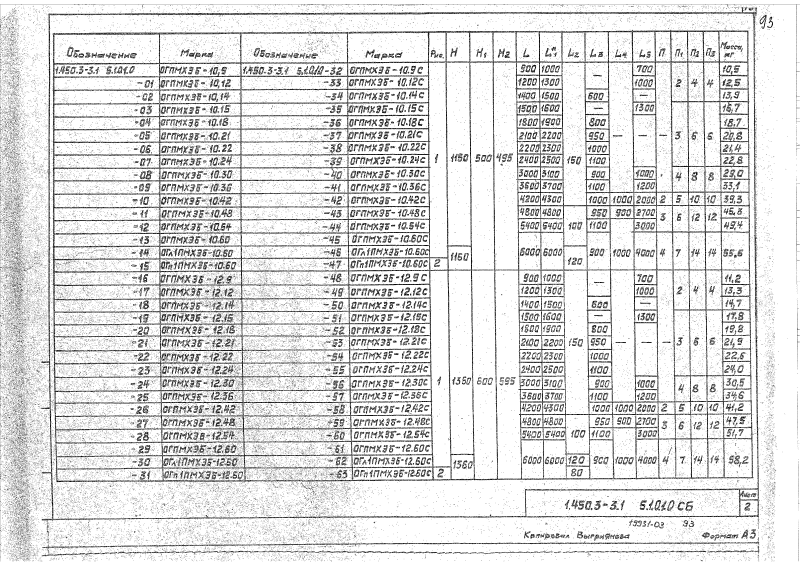 93
Обозначение Марка Обозначение Марка Рис. H H1 H2 L L1 L2 L3 L4 L5 П П1 П2 П3 Масса, кг
1.450.3-3.1 5.1.0.1.0 ОГПМХЭБ-10.9 1.450.3-3.1 5.1.0.1.0-32 ОГПМХЭБ-10.9С 900 1000 700 10,5
-01 ОГПМХЭБ-10.12 -33 ОГПМХЭБ-10.12С 1200 1300 — 1000 2 4 4 12,5
-02 ОГПМХЭБ-10.14 -34 ОГПМХЭБ-10.14С 1400 1500 600 — 13,9
-03 ОГПМХЭБ-10.15 -35 ОГПМХЭБ-10.15С 1500 1600 — 1300 16,7
-04 ОГПМХЭБ-10.18 -36 ОГПМХЭБ-10.18С 1800 1900 800 18,7
-05 ОГПМХЭБ-10.21 -37 ОГПМХЭБ-10.21С 2100 2200 950 — — — 3 6 6 20,8
-06 ОГПМХЭБ-10.22 -38 ОГПМХЭБ-10.22С 2200 2300 1000 21,4
-07 ОГПМХЭБ-10.24 -39 ОГПМХЭБ-10.24С 1 1150 500 495 2400 2500 150 1100 22,8
-08 ОГПМХЭБ-10.30 -40 ОГПМХЭБ-10.30С 3000 3100 900 1000 4 8 8 29,0
-09 ОГПМХЭБ-10.36 -41 ОГПМХЭБ-10.36С 3600 3700 1100 1200 33,1
-10 ОГПМХЭБ-10.42 -42 ОГПМХЭБ-10.42С 4200 4300 1000 1000 2000 2 5 10 10 39,3
-11 ОГПМХЭБ-10.48 -43 ОГПМХЭБ-10.48С 4800 4800 950 900 2700 3 6 12 12 45,3
-12 ОГПМХЭБ-10.54 -44 ОГПМХЭБ-10.54С 5400 5400 100 1100 3000 49,4
-13 ОГПМХЭБ-10.60 -45 ОГПМХЭБ-10.60С
-14 ОГл1ПМХЭБ-10.60 -46 ОГл1ПМХЭБ-10.60С 1160 6000 6000 120 900 1000 4000 4 7 14 14 55,6
-15 ОГп1ПМХЭБ-10.60 -47 ОГп1ПМХЭБ-10.60С 2
-16 ОГПМХЭБ-12.9 -48 ОГПМХЭБ-12.9С 900 1000 700 11,2
-17 ОГПМХЭБ-12.12 -49 ОГПМХЭБ-12.12С 1200 1300 — 1000 2 4 4 13,3
-18 ОГПМХЭБ-12.14 -50 ОГПМХЭБ-12.14С 1400 1500 600 — 14,7
-19 ОГПМХЭБ-12.15 -51 ОГПМХЭБ-12.15С 1500 1600 — 1300 17,8
-20 ОГПМХЭБ-12.18 -52 ОГПМХЭБ-12.18С 1800 1900 800 19,8
-21 ОГПМХЭБ-12.21 -53 ОГПМХЭБ-12.21С 2100 2200 150 950 — — — 3 6 6 21,9
-22 ОГПМХЭБ-12.22 -54 ОГПМХЭБ-12.22С 2200 2300 1000 22,6
-23 ОГПМХЭБ-12.24 -55 ОГПМХЭБ-12.24С 2400 2500 1100 24,0
-24 ОГПМХЭБ-12.30 -56 ОГПМХЭБ-12.30С 1 1350 600 595 3000 3100 900 1000 4 8 8 30,5
-25 ОГПМХЭБ-12.36 -57 ОГПМХЭБ-12.36С 3600 3700 1100 1200 34,6
-26 ОГПМХЭБ-12.42 -58 ОГПМХЭБ-12.42С 4200 4300 1000 1000 2000 2 5 10 10 41,2
-27 ОГПМХЭБ-12.48 -59 ОГПМХЭБ-12.48С 4800 4800 950 900 2700 3 6 12 12 47,5
-28 ОГПМХЭБ-12.54 -60 ОГПМХЭБ-12.54С 5400 5400 100 1100 3000 51,7
-29 ОГПМХЭБ-12.60 -61 ОГПМХЭБ-12.60С
-30 ОГл1ПМХЭБ-12.60 -62 ОГл1ПМХЭБ-12.60С 1360 6000 6000 120 900 1000 4000 4 7 14 14 58,2
-31 ОГп1ПМХЭБ-12.60 -63 ОГп1ПМХЭБ-12.60С 2 80
1.450.3-3.1 5.1.0.1.0 СБ Лист 2
19931-03 93
Копировал Выгриянова Формат А3